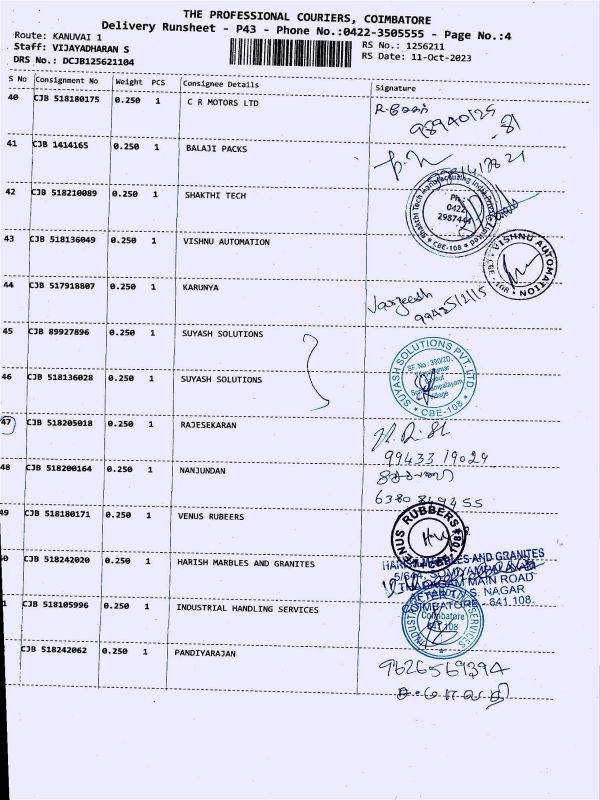 THE PROFESSIONAL COURIERS, COIMBATORE
Delivery Runsheet - P43 - Phone No.:0422-3505555 - Page No.:4
Route: KANUVAI 1
Staff: VIJAYADHARAN S
DRS No.: DCJB125621104
RS No.: 1256211
RS Date: 11-Oct-2023
S No Consignment No Weight PCS Consignee Details Signature
40 CJB 518180175 0.250 1 C R MOTORS LTD
41 CJB 1414165 0.250 1 BALAJI PACKS
42 CJB 518210089 0.250 1 SHAKTHI TECH
Shakthi Tech Manufacturing India
Ph:
0422
2987444
* CBE-108 *
43 CJB 518136049 0.250 1 VISHNU AUTOMATION
VISHNU AUTOMATION
CBE - 108
44 CJB 517918807 0.250 1 KARUNYA
99425/2115
45 CJB 89927896 0.250 1 SUYASH SOLUTIONS
SUYASH SOLUTIONS PVT. LTD.
SF.No: 390/2D,
Village
* CBE-108 *
46 CJB 518136028 0.250 1 SUYASH SOLUTIONS
47 CJB 518205018 0.250 1 RAJESEKARAN
99433 19029
48 CJB 518200164 0.250 1 NANJUNDAN
49 CJB 518180171 0.250 1 VENUS RUBEERS
VENUS RUBBERS
CBE-108
0 CJB 518242020 0.250 1 HARISH MARBLES AND GRANITES
HARISH MARBLES AND GRANITES
MAIN ROAD
V.S. NAGAR
COIMBATORE - 641 108.
1 CJB 518105996 0.250 1 INDUSTRIAL HANDLING SERVICES
Coimbatore
641 108
SERVICES
CJB 518242062 0.250 1 PANDIYARAJAN
9626569394